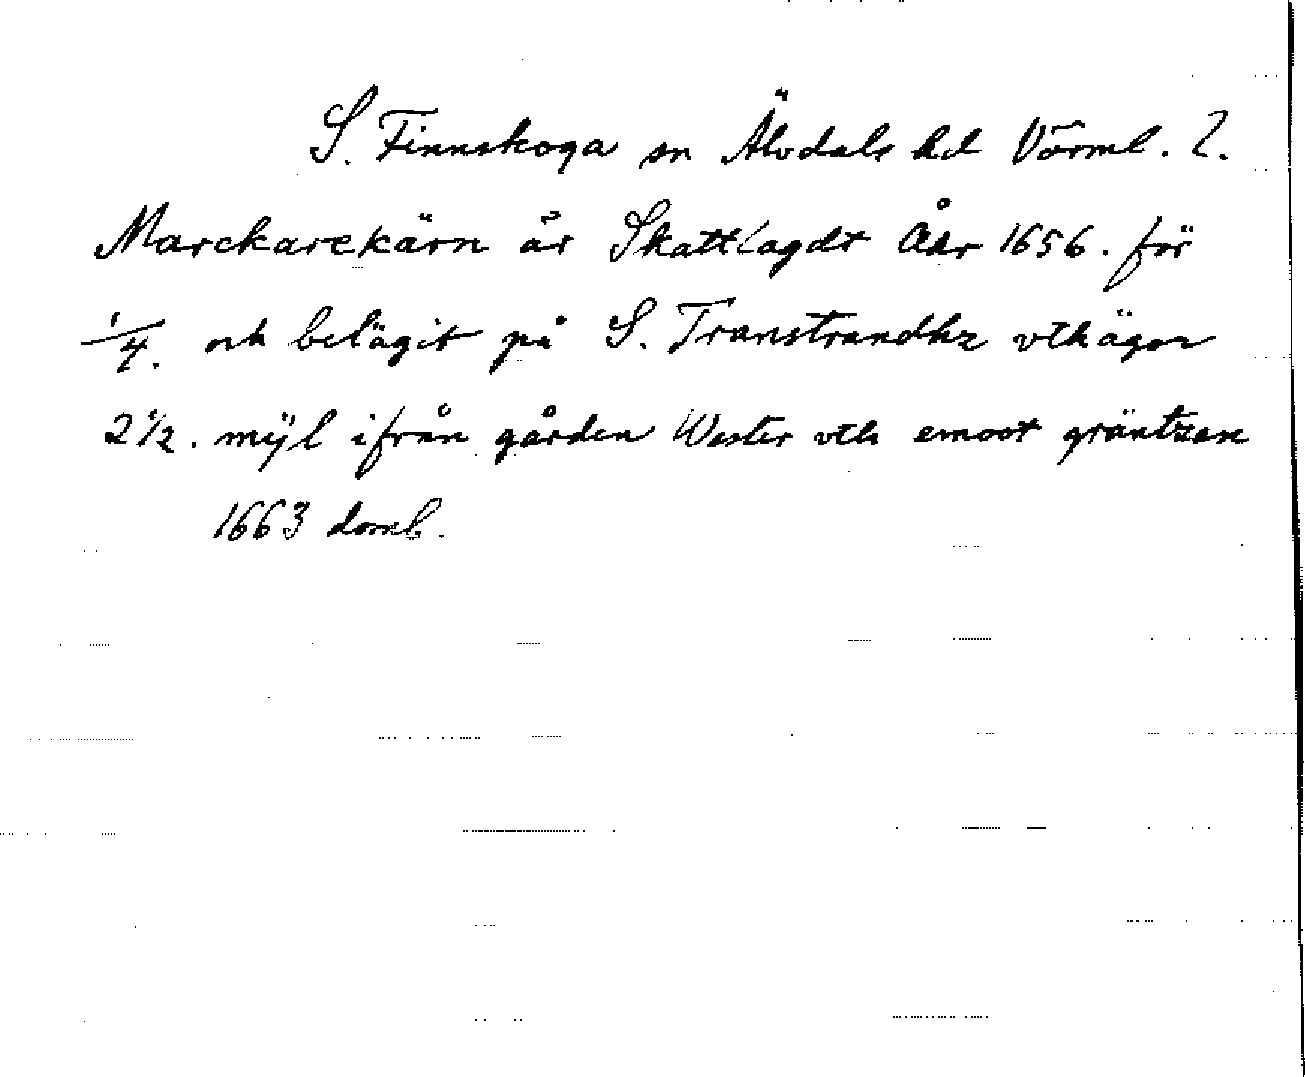 S. Finnskoga sn Älvdals hd Värml. l.
Marckarekärn är Skattlagdt Åhr 1656. för
1/4. och belägit på S. Transtrandhz vthägor
2 1/2. mÿl ifrån gården Wester vth emoot gräntzen
1663 domb.